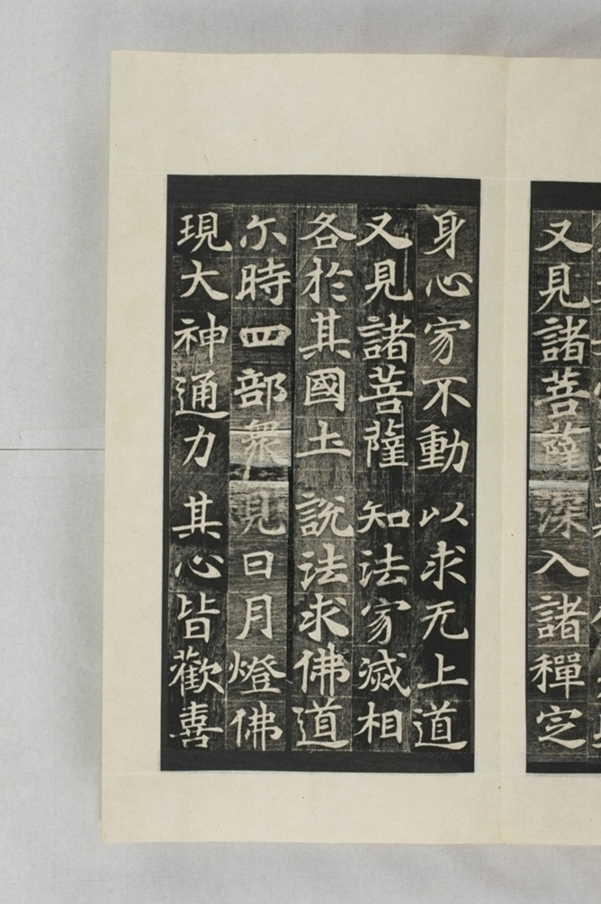 又見諸菩薩 深入諸禪定
身心寂不動 以求无上道
又見諸菩薩 知法寂滅相
各於其國土 說法求佛道
尒時四部衆 見日月燈佛
現大神通力 其心皆歡喜